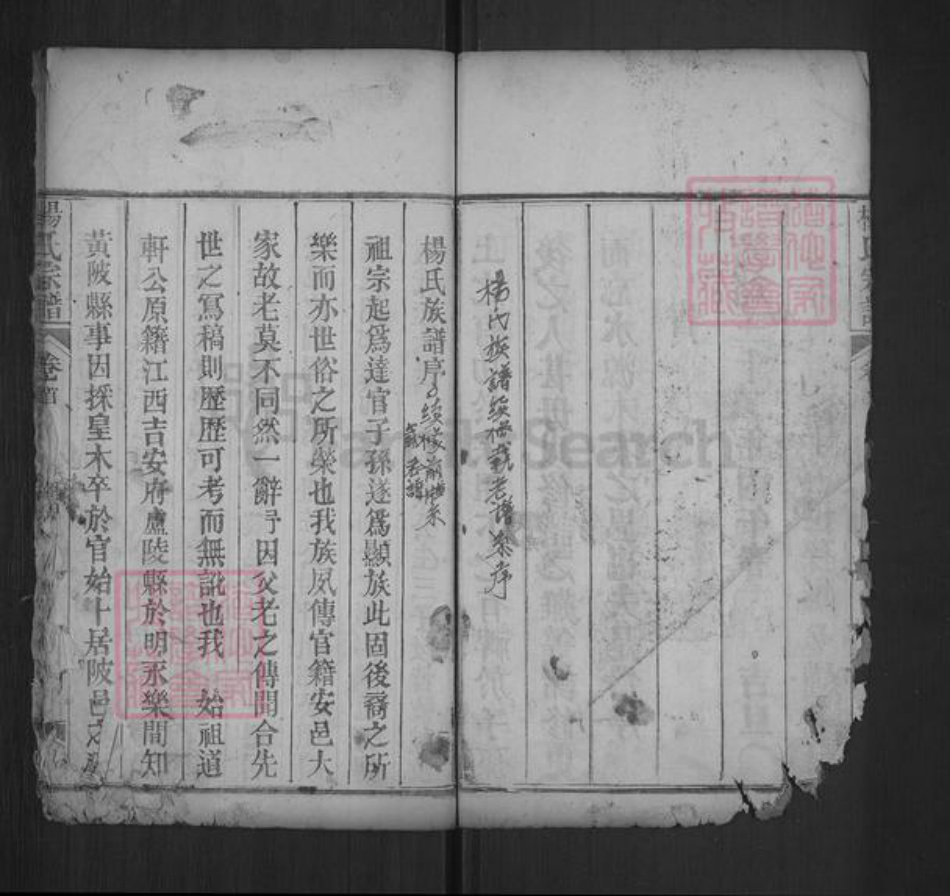 楊氏宗譜
楊氏族譜續修載老譜叅序
楊氏族譜序
續修前
載老譜
祖宗起爲達官子孫遂爲顯族此固後裔之所
樂而亦世俗之所榮也我族夙傳官籍安邑大
家故老莫不同然一辭予因父老之傳聞合先
世之寫稿則歷歷可考而無訛也我 始祖道
軒公原籍江西吉安府廬陵縣於明永樂間知
黃陂縣事因採皇木卒於官始卜居陂邑之
楊氏宗譜 卷首